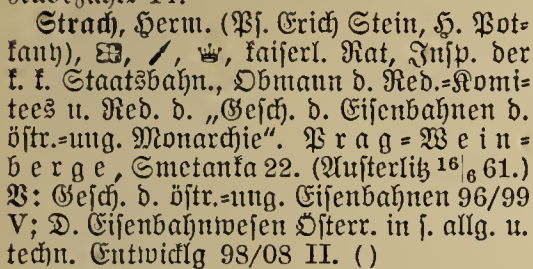 Strach, Herm. (Ps. Erich Stein, H. Pot=
tany), kaiserl. Rat, Insp. der
k. k. Staatsbahn., Obmann d. Red.=Komi=
tees u. Red. d. „Gesch. d. Eisenbahnen d.
östr.=ung. Monarchie". Prag=Wein=
berge, Smetanka 22. (Austerlitz 16|6 61.)
V: Gesch. d. östr.=ung. Eisenbahnen 96/99
V; D. Eisenbahnwesen Österr. in s. allg. u.
techn. Entwicklg 98/08 II. ()